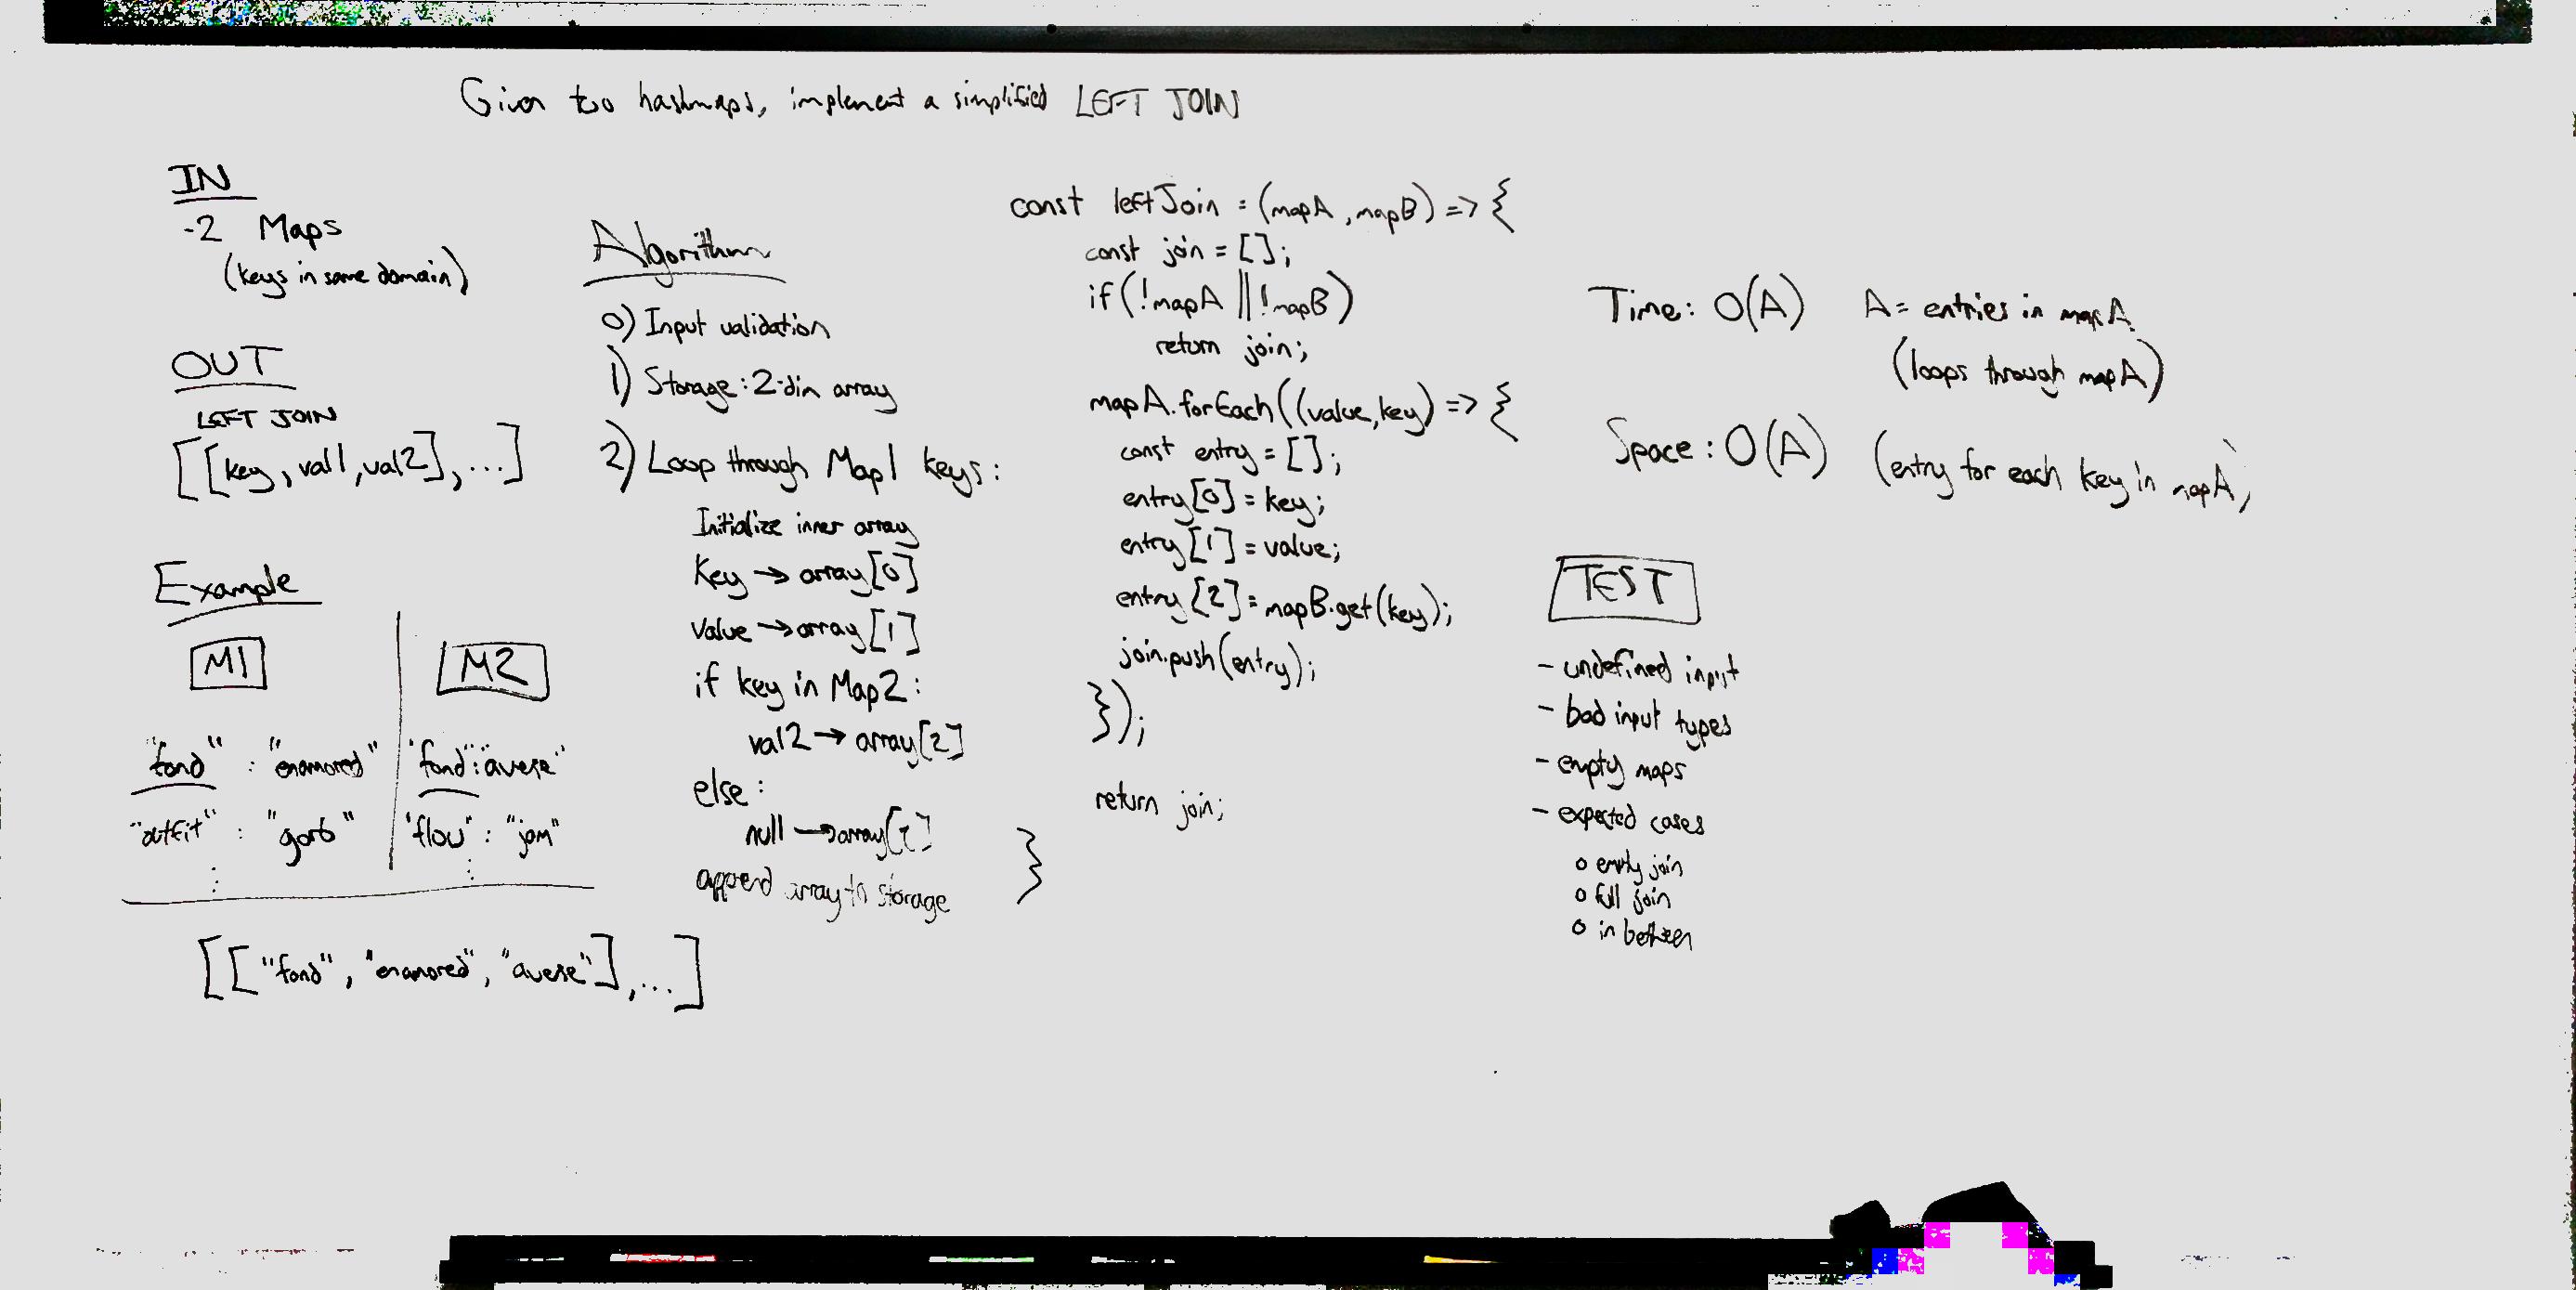 Given two hashmaps, implement a simplified LEFT JOIN
IN
-2 Maps
(keys in same domain)
OUT
LEFT JOIN
[[key, val1, val2], ...]
Example
M1
M2
"fond" : "enamored"
"fond": "averse"
"outfit" : "garb"
"flow" : "jam"
[["fond", "enamored", "averse"], ...]
Algorithm
0) Input validation
1) Storage: 2-dim array
2) Loop through Map1 keys:
Initialize inner array
Key → array[0]
value → array[1]
if key in Map2:
val2 → array[2]
else:
null → array[2]
append array to storage
const leftJoin = (mapA, mapB) => {
const join = [];
if (!mapA || !mapB)
return join;
mapA.forEach((value, key) => {
const entry = [];
entry[0] = key;
entry[1] = value;
entry[2] = mapB.get(key);
join.push(entry);
});
return join;
}
Time: O(A) A = entries in mapA
(loops through mapA)
Space: O(A) (entry for each key in mapA)
TEST
- undefined input
- bad input types
- empty maps
- expected cases
o empty join
o full join
o in between